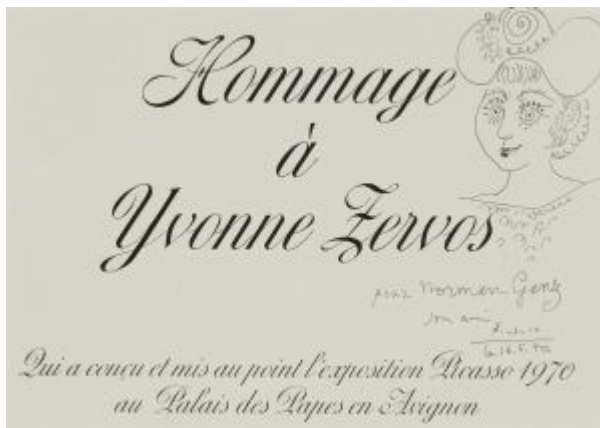 Hommage
à
Yvonne Zervos
pour Norman
son ami
Qui a conçu et mis au point l'exposition Picasso 1970
au Palais des Papes en Avignon